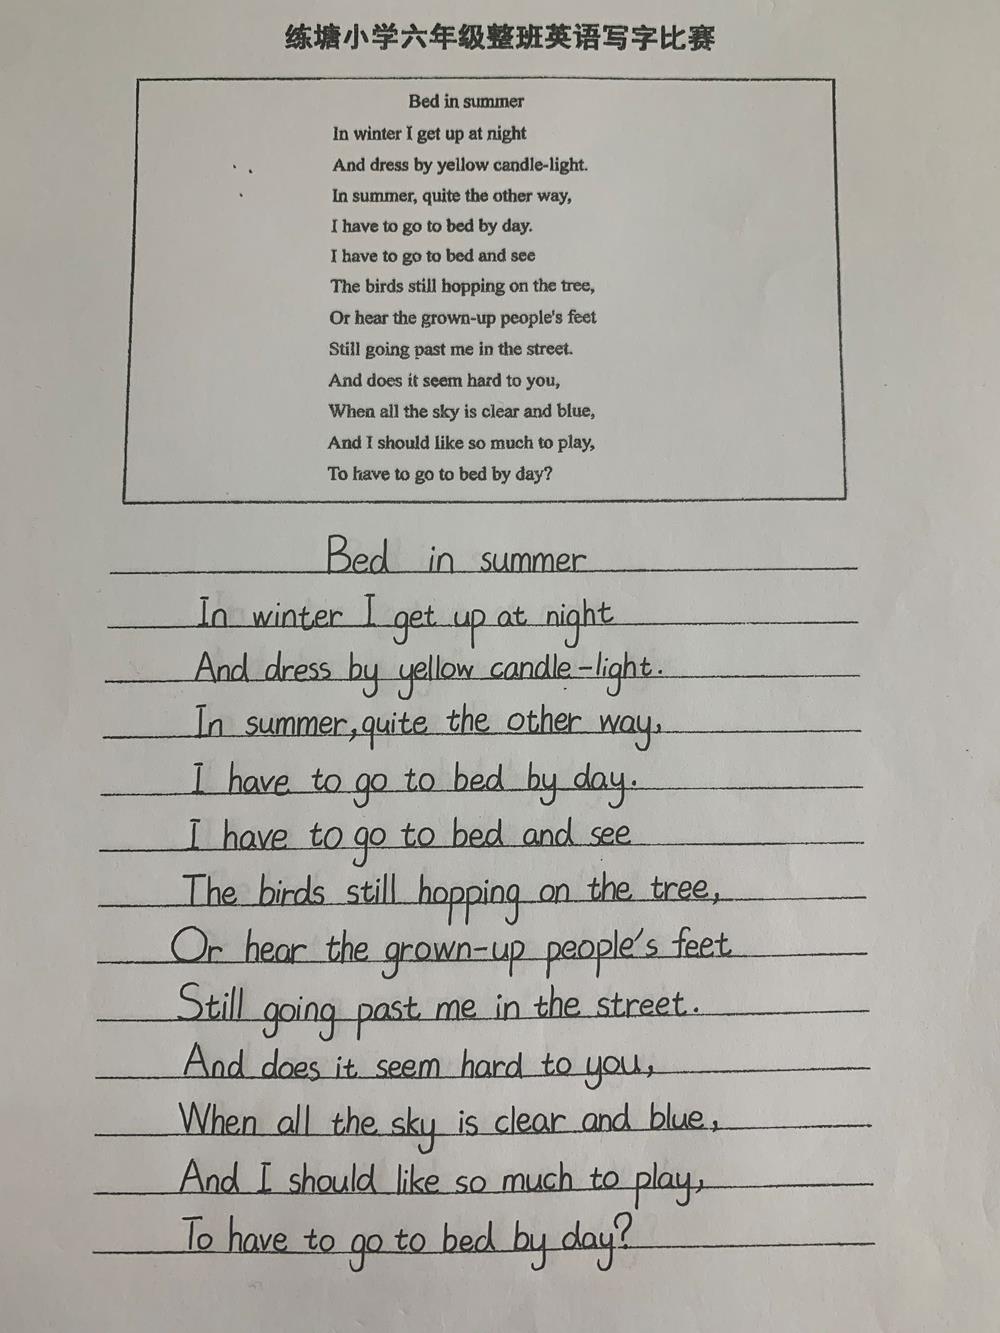 练塘小学六年级整班英语写字比赛
Bed in summer
In winter I get up at night
And dress by yellow candle-light.
In summer, quite the other way,
I have to go to bed by day.
I have to go to bed and see
The birds still hopping on the tree,
Or hear the grown-up people's feet
Still going past me in the street.
And does it seem hard to you,
When all the sky is clear and blue,
And I should like so much to play,
To have to go to bed by day?
Bed in summer
In winter I get up at night
And dress by yellow candle-light.
In summer, quite the other way,
I have to go to bed by day.
I have to go to bed and see
The birds still hopping on the tree,
Or hear the grown-up people's feet
Still going past me in the street.
And does it seem hard to you,
When all the sky is clear and blue,
And I should like so much to play,
To have to go to bed by day?